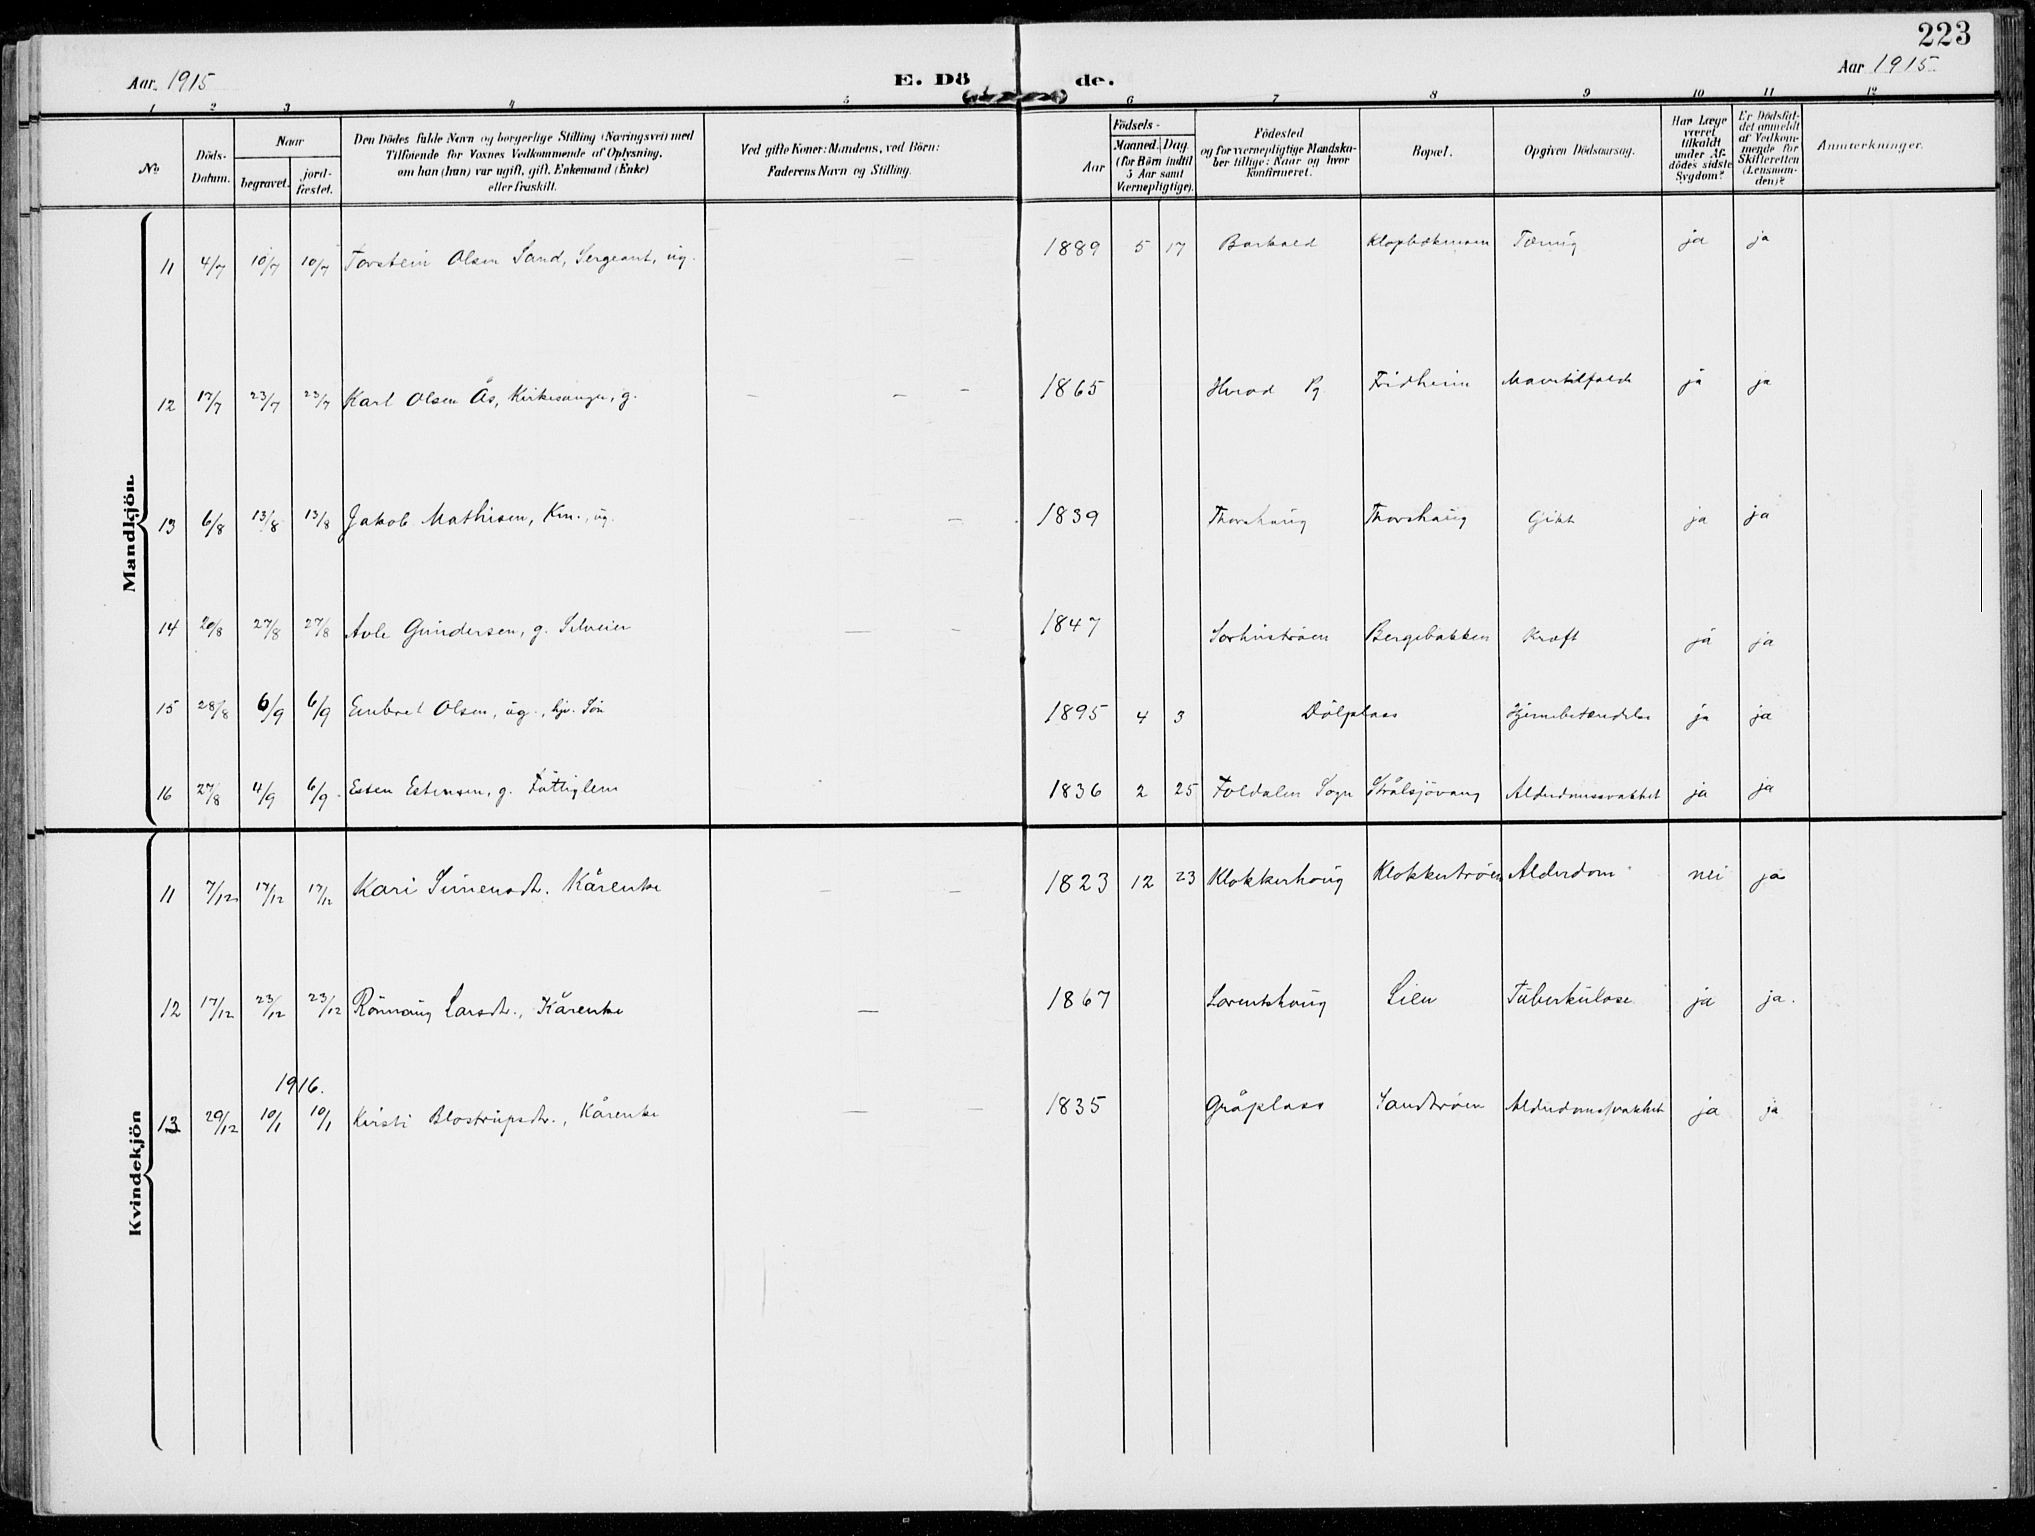 223
Aar. 1915
E. Dö
de.
Aar 1915.
1 2 3 4 5 6 7 8 9 10 11 12
No
Döds-Datum.
Naar
begravet.
jord-fæstet.
Den Dödes fulde Navn og borgerlige Stilling (Næringsvei) med
Tilföiende for Voxnes Vedkommende af Oplysning,
om han (hun) var ugift, gift, Enkemand (Enke)
eller fraskilt.
Ved gifte Koner: Mandens, ved Börn:
Faderens Navn og Stilling.
Födsels-
Aar
Maaned. Dag.
(for Börn indtil
5 Aar samt
Værnepligtige).
Födested
og for værnepligtige Mandska-
ber tillige: Naar og hvor
konfirmeret.
Bopæl.
Opgiven Dödsaarsag.
Har Læge
været
tilkaldt
under Af-
dödes sidste
Sygdom?
Er Dödsfal-
det anmeldt
af Vedkom-
mende for
Skifteretten
(Lensman-
den)?
Anmærkninger.
Mandkjön.
11 4/7 10/7 10/7 Torstein Olsen Sand, Sergeant, ug. — — 1889 5 17 Barkald Klopbækmoen Tæring ja ja
12 17/7 23/7 23/7 Karl Olsen Ås, Kirkesanger, g. — — — 1865 Hurdal Pg. Fridheim Mavetilfælde ja ja
13 6/8 13/8 13/8 Jakob Mathisen, Km., ug. — 1839 Thorshaug Thorshaug Gikt ja ja
14 20/8 27/8 27/8 Avle Gundersen, g. Selveier — — 1847 Bergebakken Kræft ja ja
15 28/8 6/9 6/9 Embret Olsen, ug., hjv. Søn 1895 4 3 Dölplass Hjernebetændelse ja ja
16 27/8 4/9 6/9 Esten Estensen, g. Fattiglem 1836 2 25 Foldalen Sogn Strålsjövang Alderdomssvakhet ja ja
Kvindekjön
11 7/12 17/12 17/12 Kari Simensdtr. Kårenke — — 1823 12 23 Klokkerhaug Klokkertröen Alderdom nei ja
12 17/12 23/12 23/12 Rönnaug Larsdtr., Kårenke — 1867 Lorentshaug Lien Tuberkulose ja ja.
1916.
13 29/12 10/1 10/1 Kirsti Blostrupsdtr., Kårenke — — 1835 Gråplass Sandtröen Alderdomssvakhet ja ja